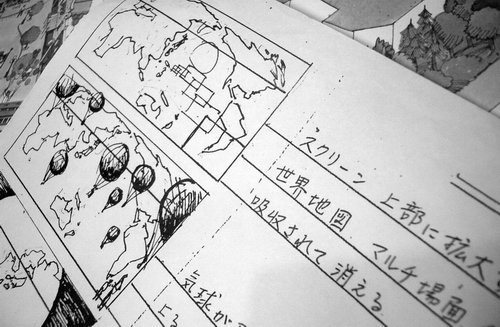 スクリーン 上部に拡大
世界地図 マルチ場面
吸収されて消える
気球が